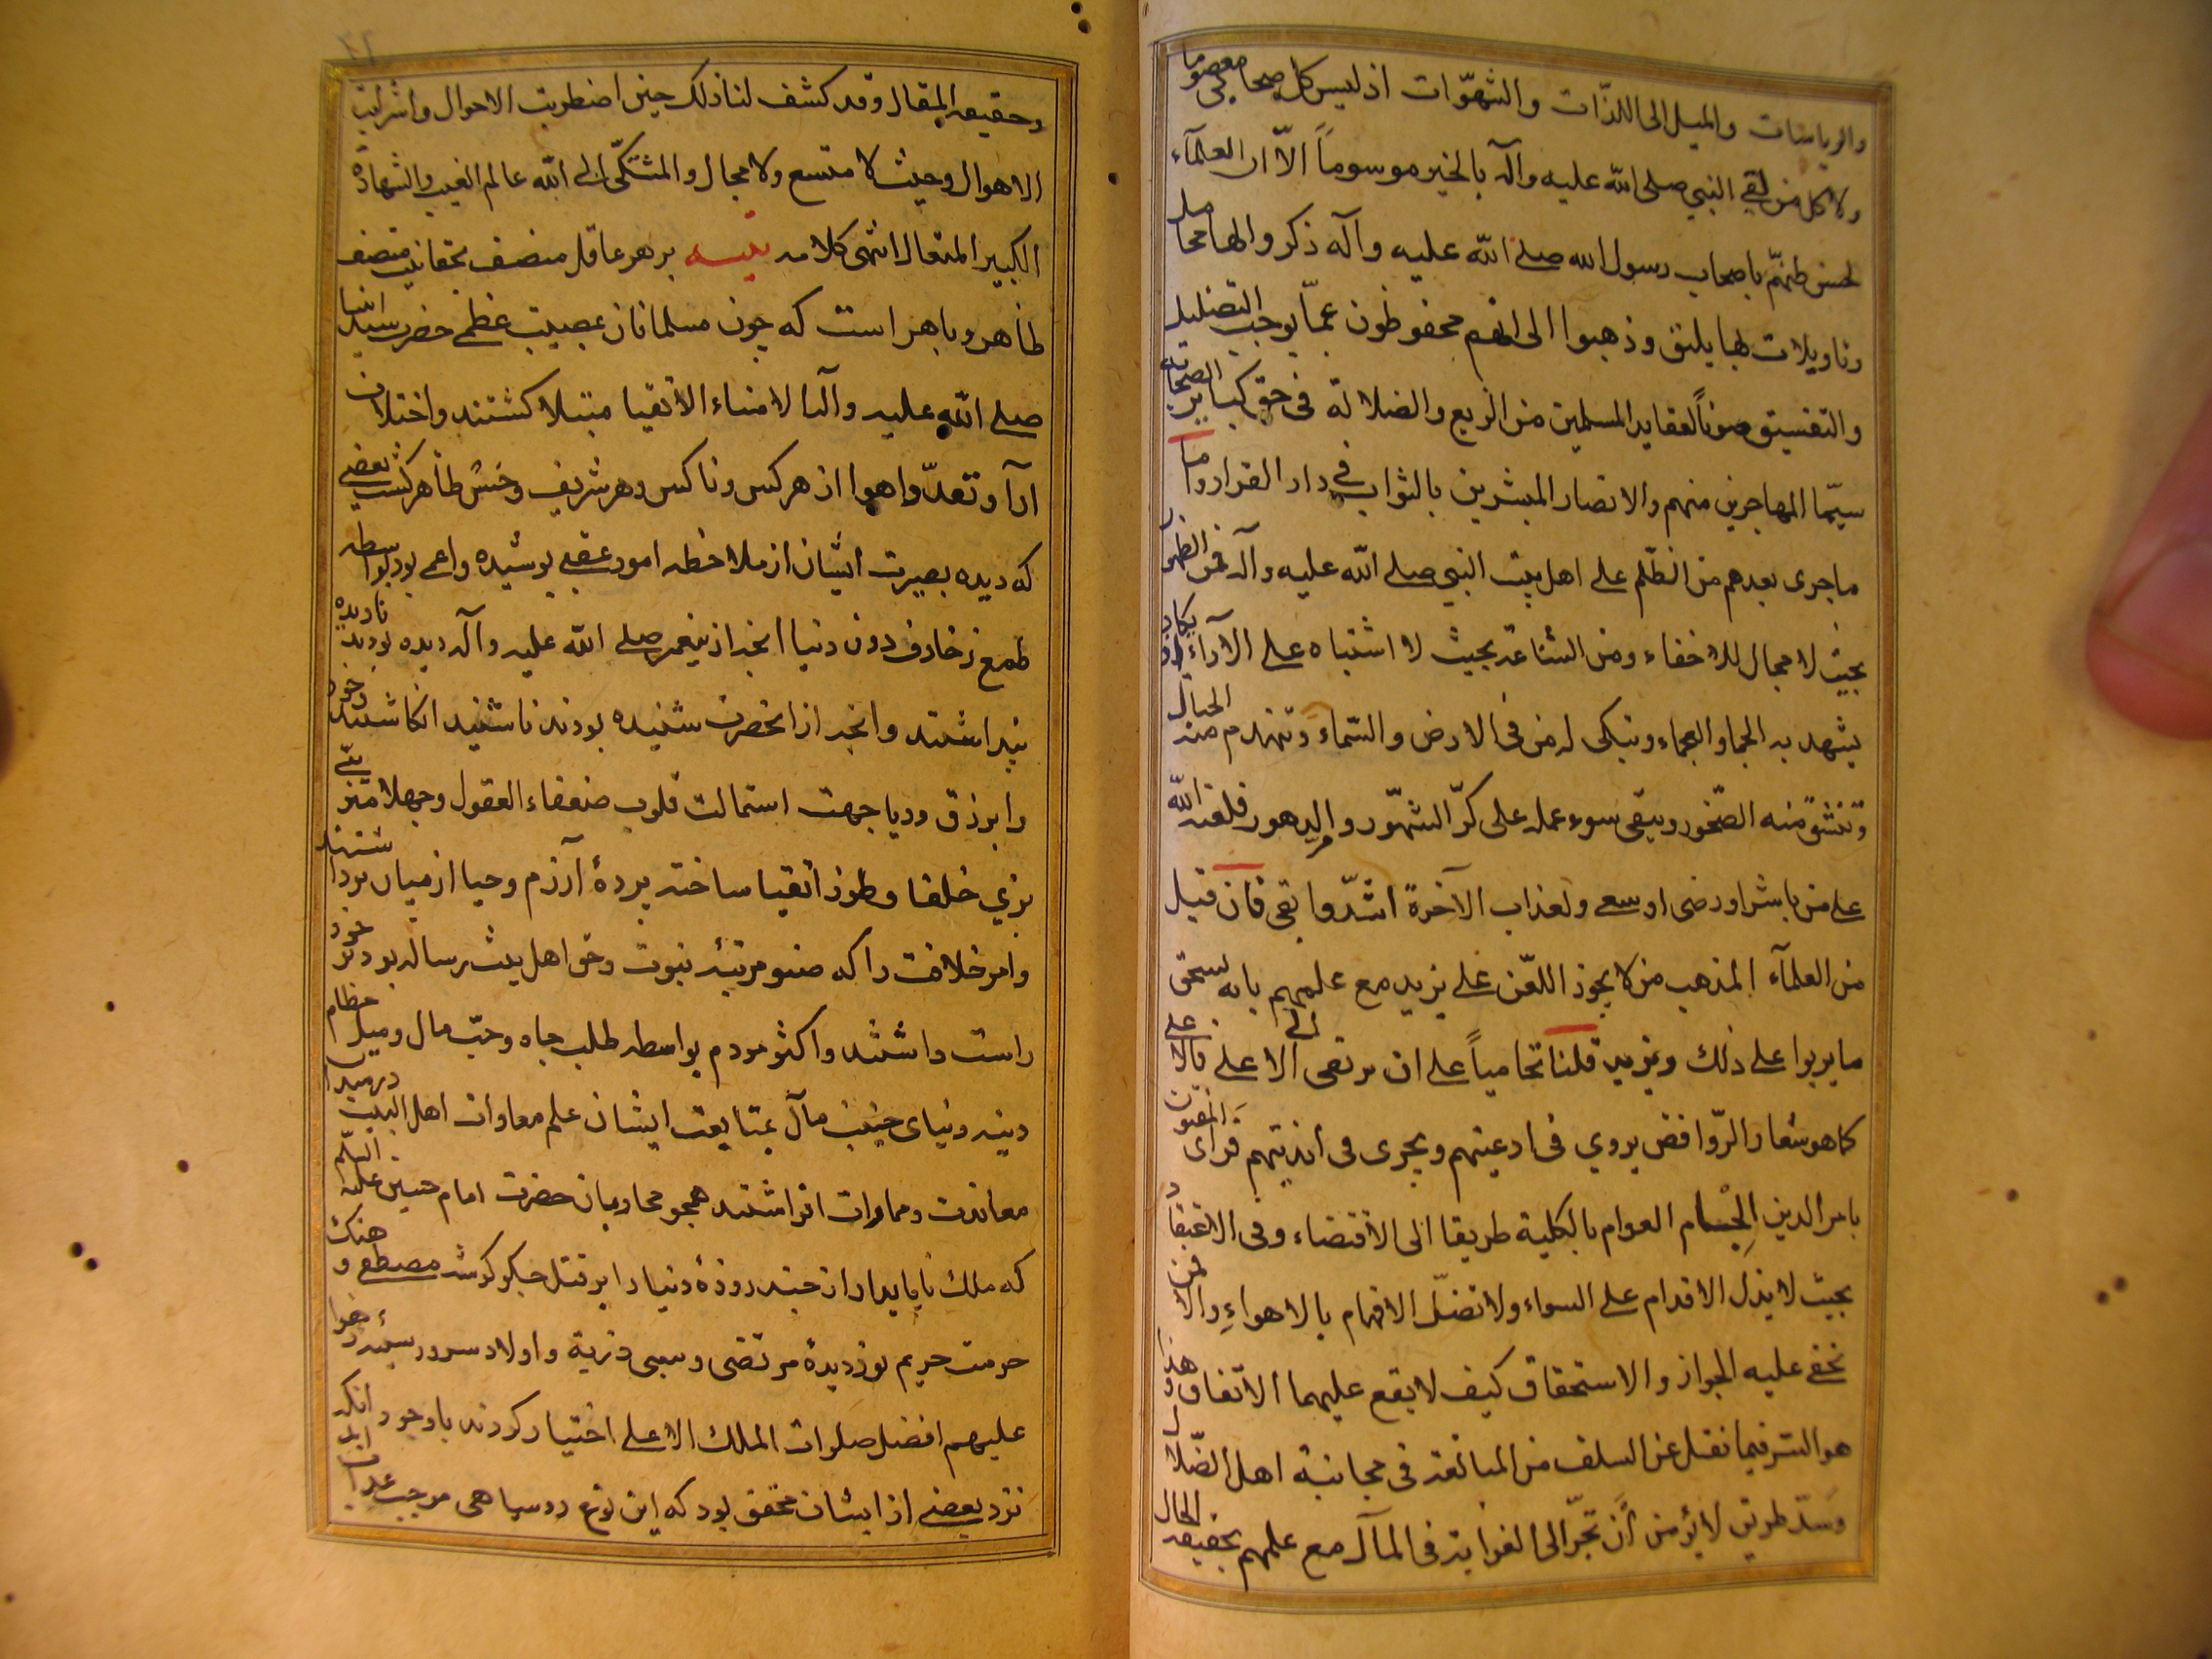 والریاسات والمیل الی اللذّات والشهّوات اذ لیس کل صحابی معصوما
ولا کل من لقی النبی صلی الله علیه وآله بالخیر موسوماً الّا ان العلمآء
لحسن ظنهّم باصحاب رسول الله صلی الله علیه وآله ذکروا لها محامل
وتاویلات بها یلیق وذهبوا الی انهم محفوظون عمّا یوجب التضلیل
والتفسیق صوناً لعقاید المسلمین من الزیع والضلالة فی حق کبایر الصحابة
سیّما المهاجرین منهم والانصار المبشرین بالثواب فی دار القرار واما
ماجری بعدهم من الظّلم علی اهل بیت النبی صلی الله علیه وآله فمن الظهور
بحیث لا مجال للاخفاء ومن الشناعة بحیث لا اشتباه علی الآراء یکاد
یشهد به الجماد والعجماء وتبکی له من فی الارض والسّماء وتنهدم منه الجبال
وتنشق منه الصّخور ویبقی سوء عمله علی کرّ الشهّور والدهور فلعنة الله
علی من باشر او رضی او سعی ولعذاب الآخرة اشدّ وابقی فان قیل
من العلمآء المذهب من لا یجوز اللعّن علی یزید مع علمهم بانه یستحق
ما یربوا علی ذلک ویزید قلنا تحامیاً علی ان یرتقی الی الاعلی فالاعلی
کما هو شعار الرّوافض یروی فی ادعیتهم ویجری فی اندیتهم فرای المعتنون
بامر الدین الجام العوام بالکلیة طریقا الی الاقتضاء وفی الاعتقاد
بحیث لا یذل الاقدام علی السواء ولا تضلّ الافهام بالاهواءِ والا فمن
یخفی علیه الجواز والاستحقاق کیف لا یقع علیهما الاتفاق وهذا
هو السر فیما نقل عن السلف من المبالغة فی مجانبة اهل الضّلال
وسدّ طریق لا یؤمن أن تجرّ الی الغوایة فی المآل مع علمهم بحقیقة الحال
وحقیقه المقال وقد کشف لنا ذلک حین اضطربت الاحوال واشرابت
الاهوال وحیث لا متسع ولا مجال والمشتکّی الی الله عالم الغیب والشهادة
الکبیر المتعال انتهی کلامه تنبیه بر هر عاقل منصف بحقانیت متصف
ظاهر وباهر است که چون مسلمانان بمصیبت عظمی حضرت سید انبیا
صلی الله علیه وآله الامناء الاتقیا مبتلا کشتند واختلاف
ارآ وتعدّد اهوا از هر کس وناکس وهر شریف وخسّ ظاهر کشت بعضی
که دیده بصیرت ایشان از ملاحظه امور عقبی پوشیده واعمی بود بواسطه
طمع زخارف دون دنیا انچه از پیغمبر صلی الله علیه وآله دیده بودند نادیده
پنداشتند وانچه از انحضرت شنیده بودند ناشنید انکاشتند وخود
را بزرق وریا جهت استمالت قلوب ضعفاء العقول وجهلا متز
بزی خلفا وطرز اتقیا ساخته پردهٔ آزرم وحیا از میان برداشتند
وامر خلافت را که صنو مرتبهٔ نبوت وحق اهل بیت رساله بود بر خود
راست داشتند واکثر مردم بواسطه طلب جاه وحبّ مال ومیل حطام
دنیه دنیای خیبت مآل بمتابعت ایشان علم معادات اهل البیت درمیدان
معاندت ومماوات افراشتند همچو محاربان حضرت امام حسین علیه السلم
که ملک ناپایدار از چند روزهٔ دنیا را بر قتل جکر کوشه مصطفی و هتک
حرمت حریم نور دیدهٔ مرتضی وسبی ذریة واولاد سرور سینهٔ زهرا
علیهم افضل صلوات الملک الاعلی اختیار کردند باوجود انکه
نزد بعضی از ایشان محقق بود که این نوع روسیاهی موجب عذاب ابد